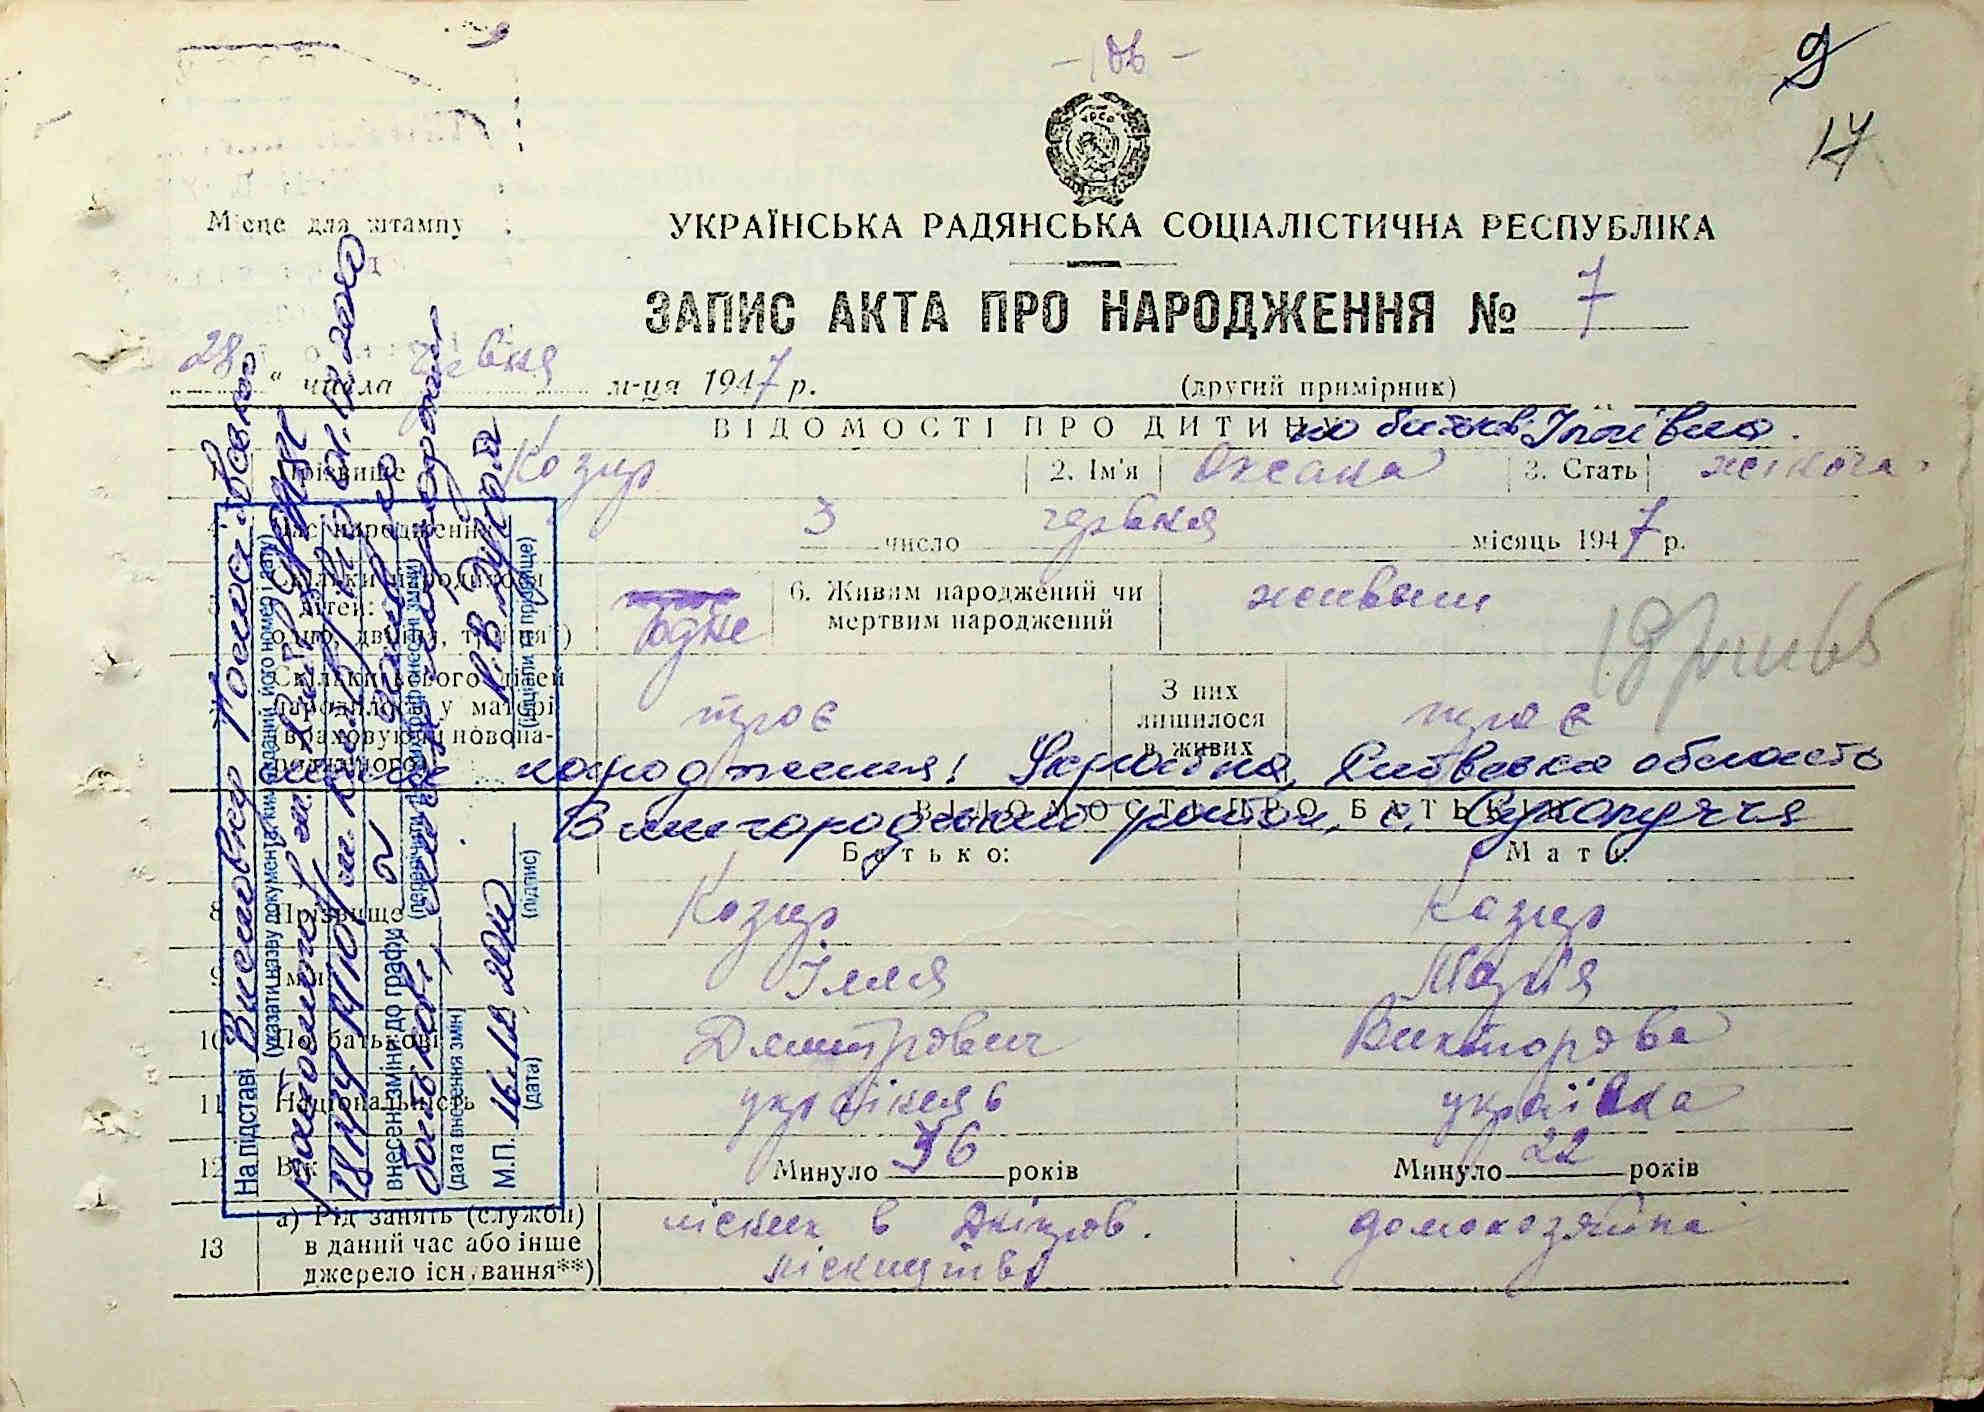 9
17
УРСР
Місце для штампу
УКРАЇНСЬКА РАДЯНСЬКА СОЦІАЛІСТИЧНА РЕСПУБЛІКА
ЗАПИС АКТА ПРО НАРОДЖЕННЯ № 7
28 " числа червня м-ця 1947 р.
(другий примірник)
ВІДОМОСТІ ПРО ДИТИНУ
по батькові Іллівна.
1 Прізвище Козир 2. Ім'я Оксана 3. Стать жіноча
4 Час народження 3 число червня місяць 1947 р.
5 Скільки народилося дітей: одно, двійня, трійня*) одне
6. Живим народжений чи мертвим народжений живым
7 Скільки всього дітей народилося у матері (враховуючи новонародженого) троє
З них лишилося в живих троє
місце народження: Україна, Київська область
Вишгородський район, с. Сухолуччя
ВІДОМОСТІ ПРО БАТЬКІВ
Батько: Мати:
8 Прізвище Козир Козир
9 Ім'я Ілля Марія
10 По батькові Дмитрович Викторовна
11 Національність українець українка
12 Вік Минуло 36 років Минуло 22 років
13 а) Рід занять (служби) в даний час або інше джерело існування**)
лісник в Дніпров. лісництві домохозяйка
На підставі Висновку
(указати назву документа, ким виданий, його номер і дату)
внесені зміни до графи
(перелічити графи, внесені зміни)
батькові,
(дата внесення змін)
М.П.
(дата) (підпис) (ініціали та прізвище)